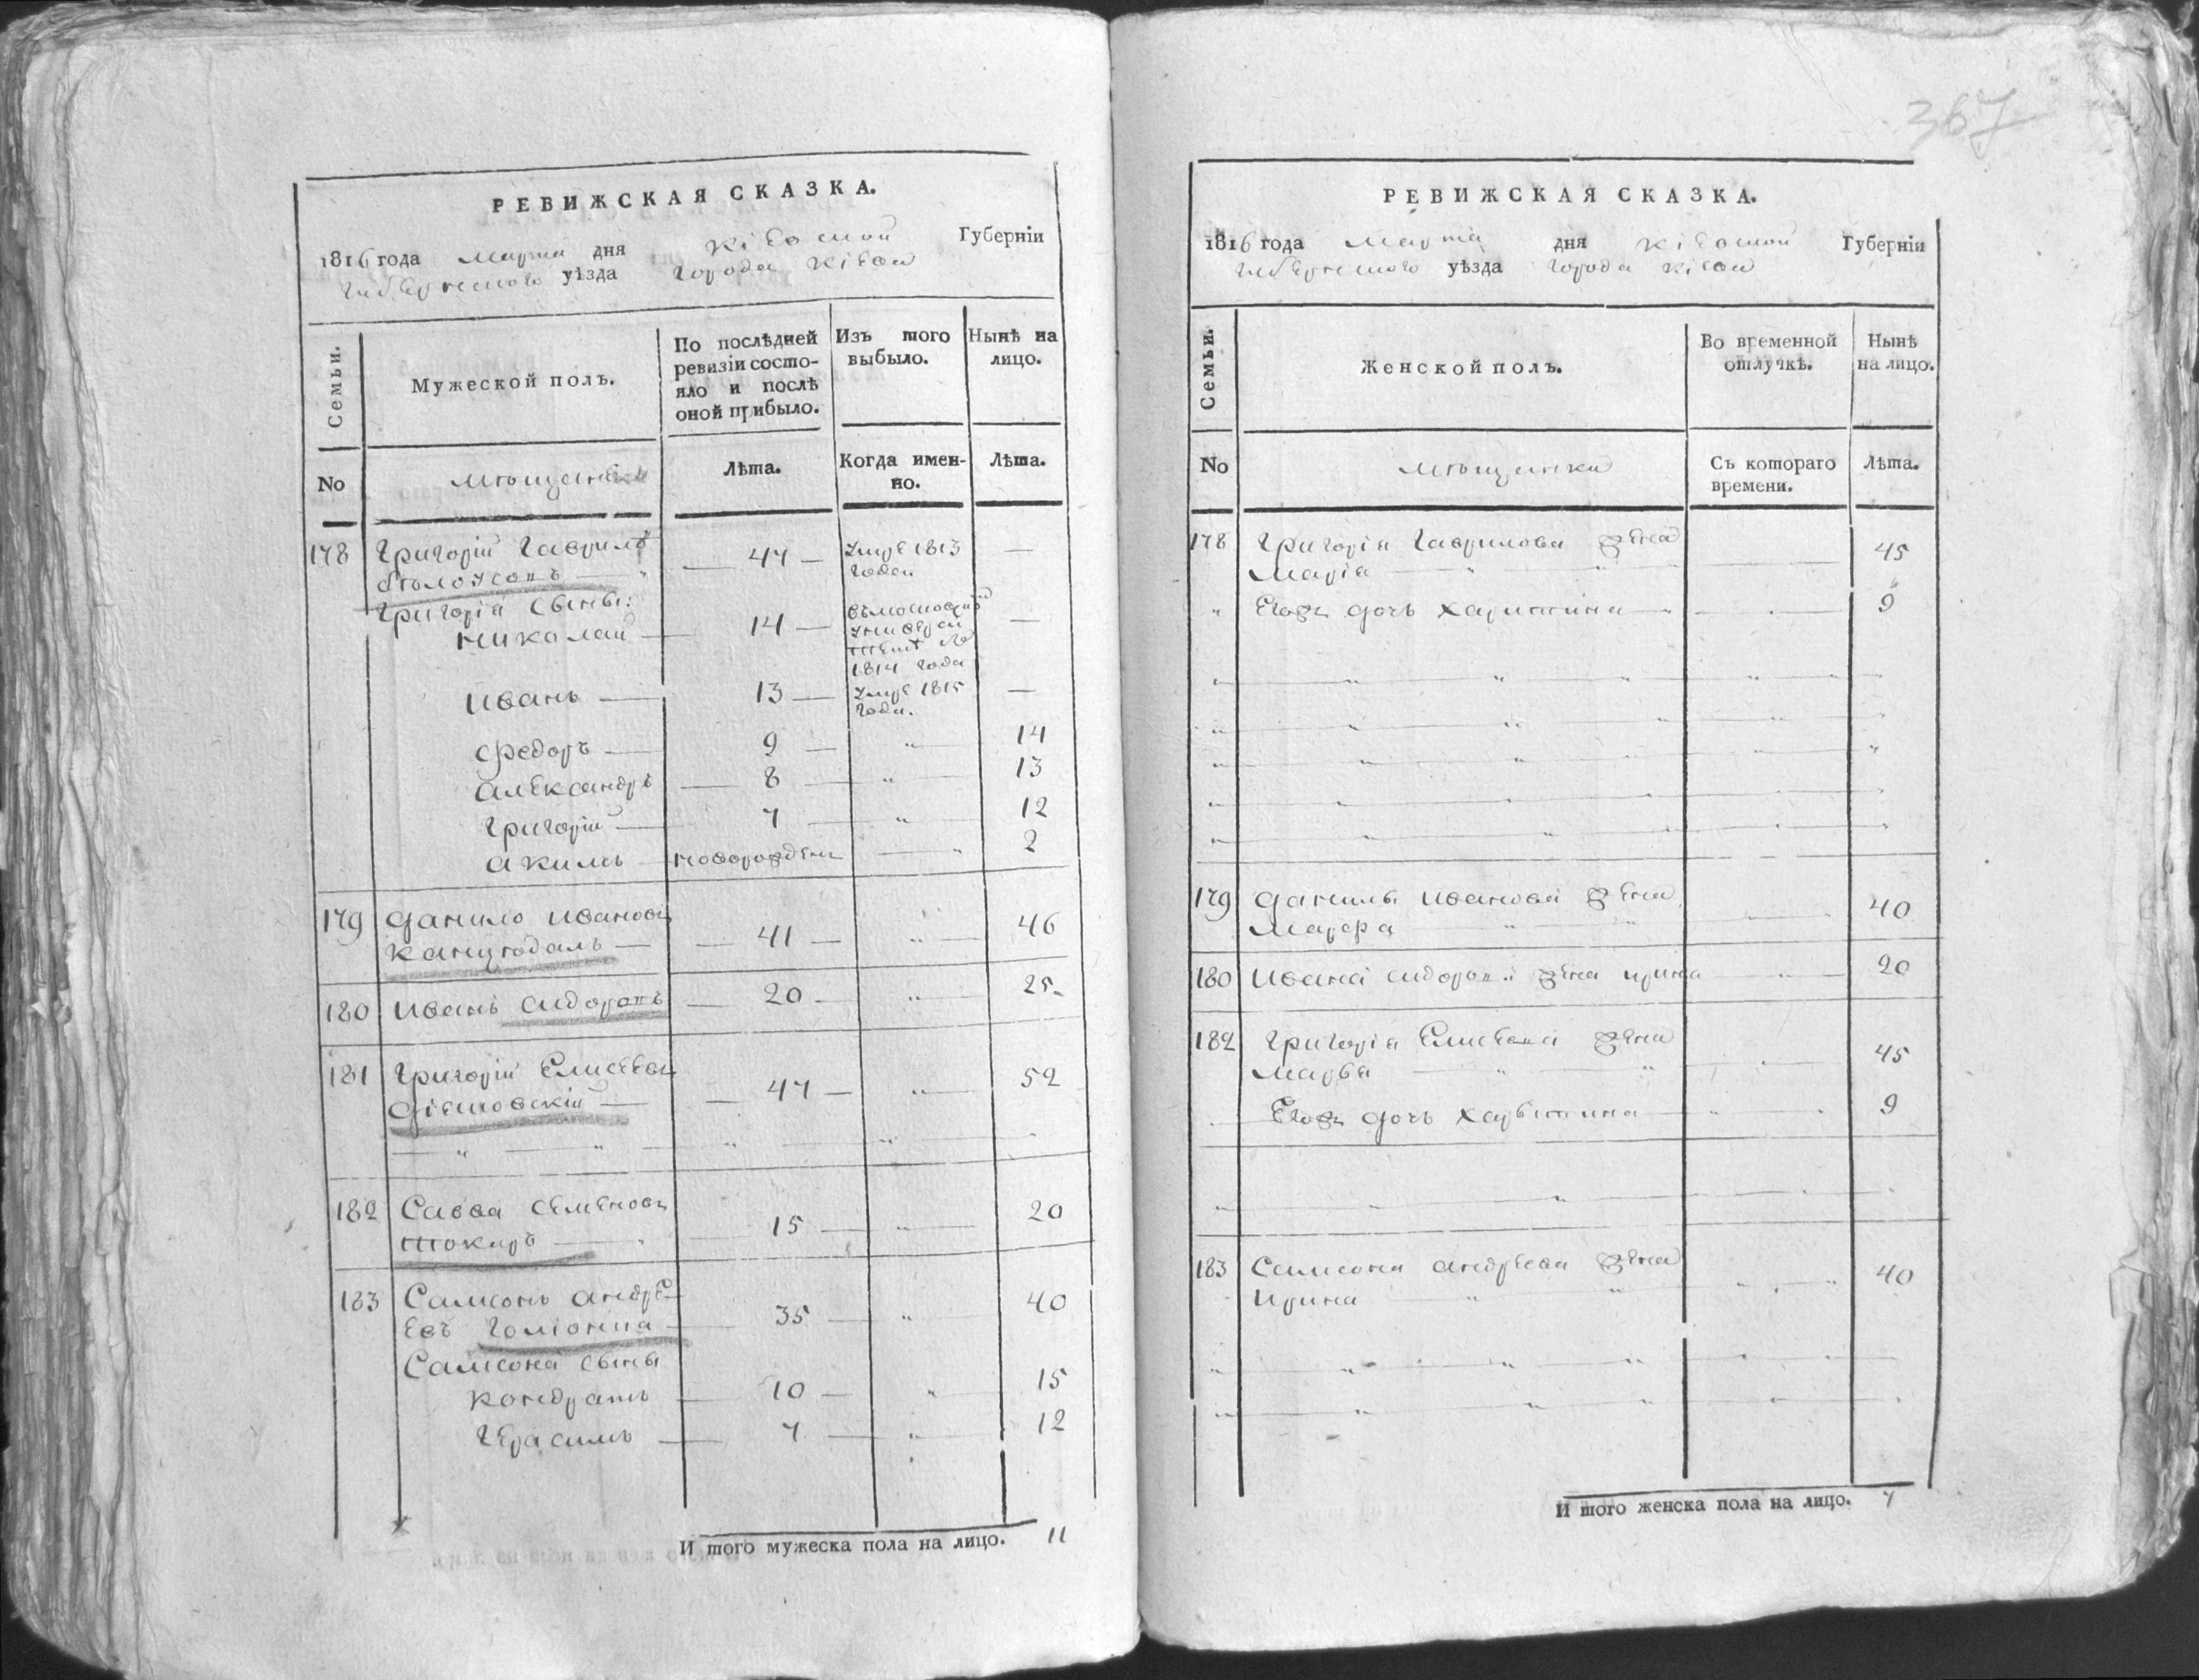 367
РЕВИЖСКАЯ СКАЗКА.
1816 года марта дня Кіевской Губерніи
Губернского уѣзда города Кіева
Семьи.
Мужеской полъ.
По послѣдней ревизіи состояло и послѣ оной прибыло.
Изъ того выбыло.
Нынѣ на лицо.
No
мѣщане
Лѣта.
Когда имен-
но.
Лѣта.
178 Григорій Гаврилов
Бѣлоусовъ — 47 — умре 1813 —
года
Григорія сыны:
Николай — 14 — —
1814 года
Иванъ — 13 — умре 1815 —
года.
Федоръ — 9 — " 14
Александръ — 8 — " 13
Григорій — 7 — " 12
Акимъ — новорожден — " 2
179 Данило Ивановъ
— 41 — " — 46
180 Иванъ Сидоровъ — 20 — " 25
181 Григорій Елисеевъ
— 47 — " — 52
182 Савва Семеновъ
Токаръ — 15 — " — 20
183 Самсонъ Андре-
евъ — 35 — " 40
Самсона сыны
Кондратъ — 10 — " 15
Герасимъ — 7 — " 12
И того мужеска пола на лицо. 11
РЕВИЖСКАЯ СКАЗКА.
1816 года марта дня Кіевской Губерніи
Губернского уѣзда города Кіева
Семьи.
Женской полъ.
Во временной
отлучкѣ.
Нынѣ
на лицо.
No
мѣщанки
Съ котораго
времени.
Лѣта.
178 Григорія Гаврилова жена
Марія — " — " — 45
" Егожъ дочь Харитина — " — 9
179 Данилы Иванова жена
Марфа — " — " 40
180 Ивана Сидорова жена Ирина — " — 20
182 Григорія Елисеева жена
— " — " 45
Егожъ дочь Харытина — " — 9
183 Самсона Андреева жена
Ирина — " — " 40
И того женска пола на лицо. 7